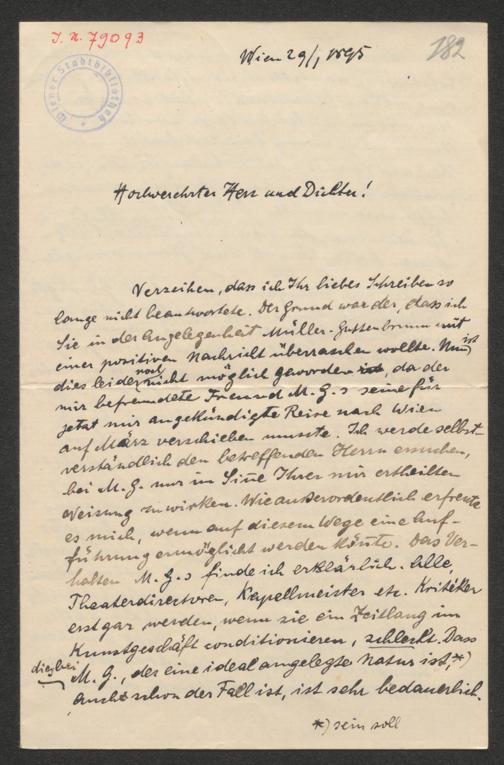 I. N. 79093
182
Wien 29/1 1895
Wiener Stadtbibliothek
Hochverehrter Herr und Dichter!
Verzeihen, dass ich Ihr liebes Schreiben so
lange nicht beantwortete. Der Grund war der, dass ich
Sie in der Angelegenheit Müller-Guttenbrunn mit
einer positiven Nachricht überraschen wollte. Nun ist
dies leider noch nicht möglich geworden ist, da der
mir befreundete Freund M. G.s seine für
jetzt mir angekündigte Reise nach Wien
auf März verschieben musste. Ich werde selbst-
verständlich den betreffenden Herrn ersuchen,
bei M. G. nur im Sinne Ihrer mir ertheilten
Weisung zu wirken. Wie außerordentlich erfreute
es mich, wenn auf diesem Wege eine Auf-
führung ermöglicht werden könnte. Das Ver-
halten M. G.s finde ich erklärlich. Alle,
Theaterdirectoren, Kapellmeister etc. Kritiker
erst gar werden, wenn sie ein Zeitlang im
Kunstgeschäft conditionieren, schlecht. Dass
dies bei M. G., der eine ideal angelegte Natur ist,*)
auch schon der Fall ist, ist sehr bedauerlich.
*) sein soll